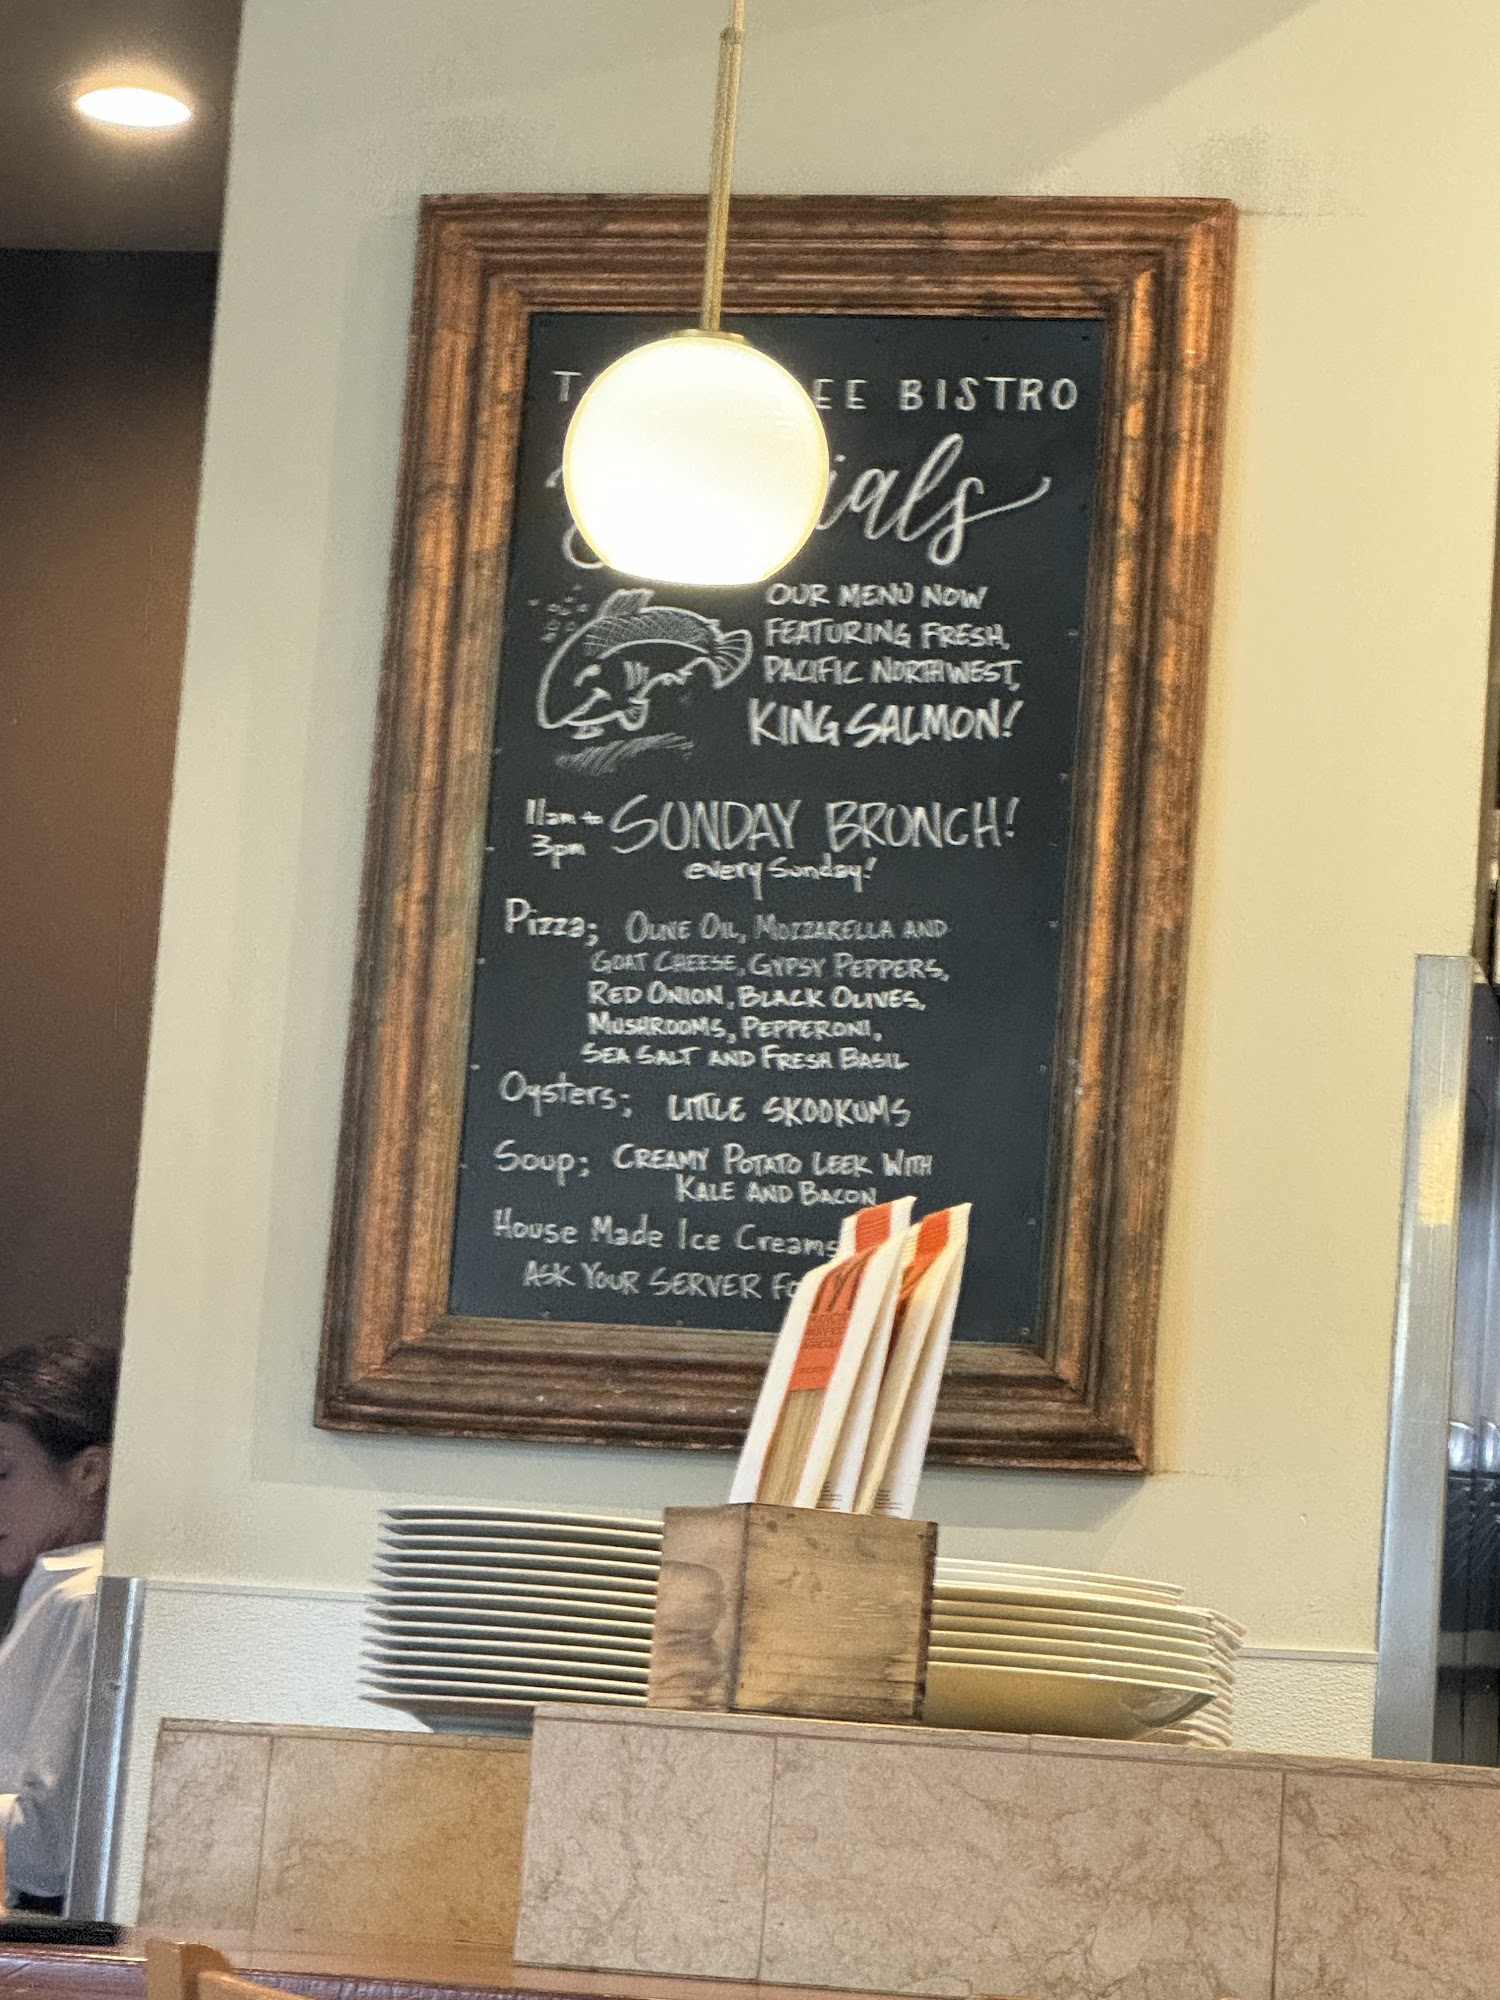 EE BISTRO
OUR MENU NOW
FEATURING FRESH,
PACIFIC NORTHWEST,
KING SALMON!
11am to
3pm
SUNDAY BRUNCH!
every Sunday!
Pizza; OLIVE OIL, MOZZARELLA AND
GOAT CHEESE, GYPSY PEPPERS,
RED ONION, BLACK OLIVES,
MUSHROOMS, PEPPERONI,
SEA SALT AND FRESH BASIL
Oysters; LITTLE SKOOKUMS
Soup; CREAMY POTATO LEEK WITH
KALE AND BACON
House Made Ice Creams
ASK YOUR SERVER